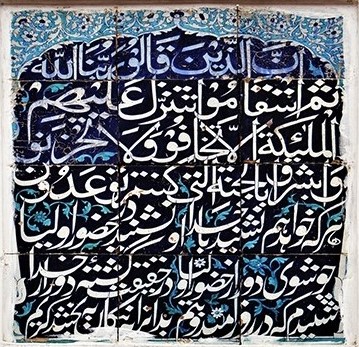 ان الذین قالوا ربنا الله
ثم استقاموا تتنزل علیهم
الملئکة الا تخافوا ولا تحزنوا
وابشروا بالجنة التی کنتم توعدون
هر که خواهد همنشینی با خدا نشیند در حضور اولیا
چو شوی دور از حضور اولیا در حقیقت گشته دور از خدا
شنیدم که در روز امید و بیم بدان را به نیکان ببخشد کریم